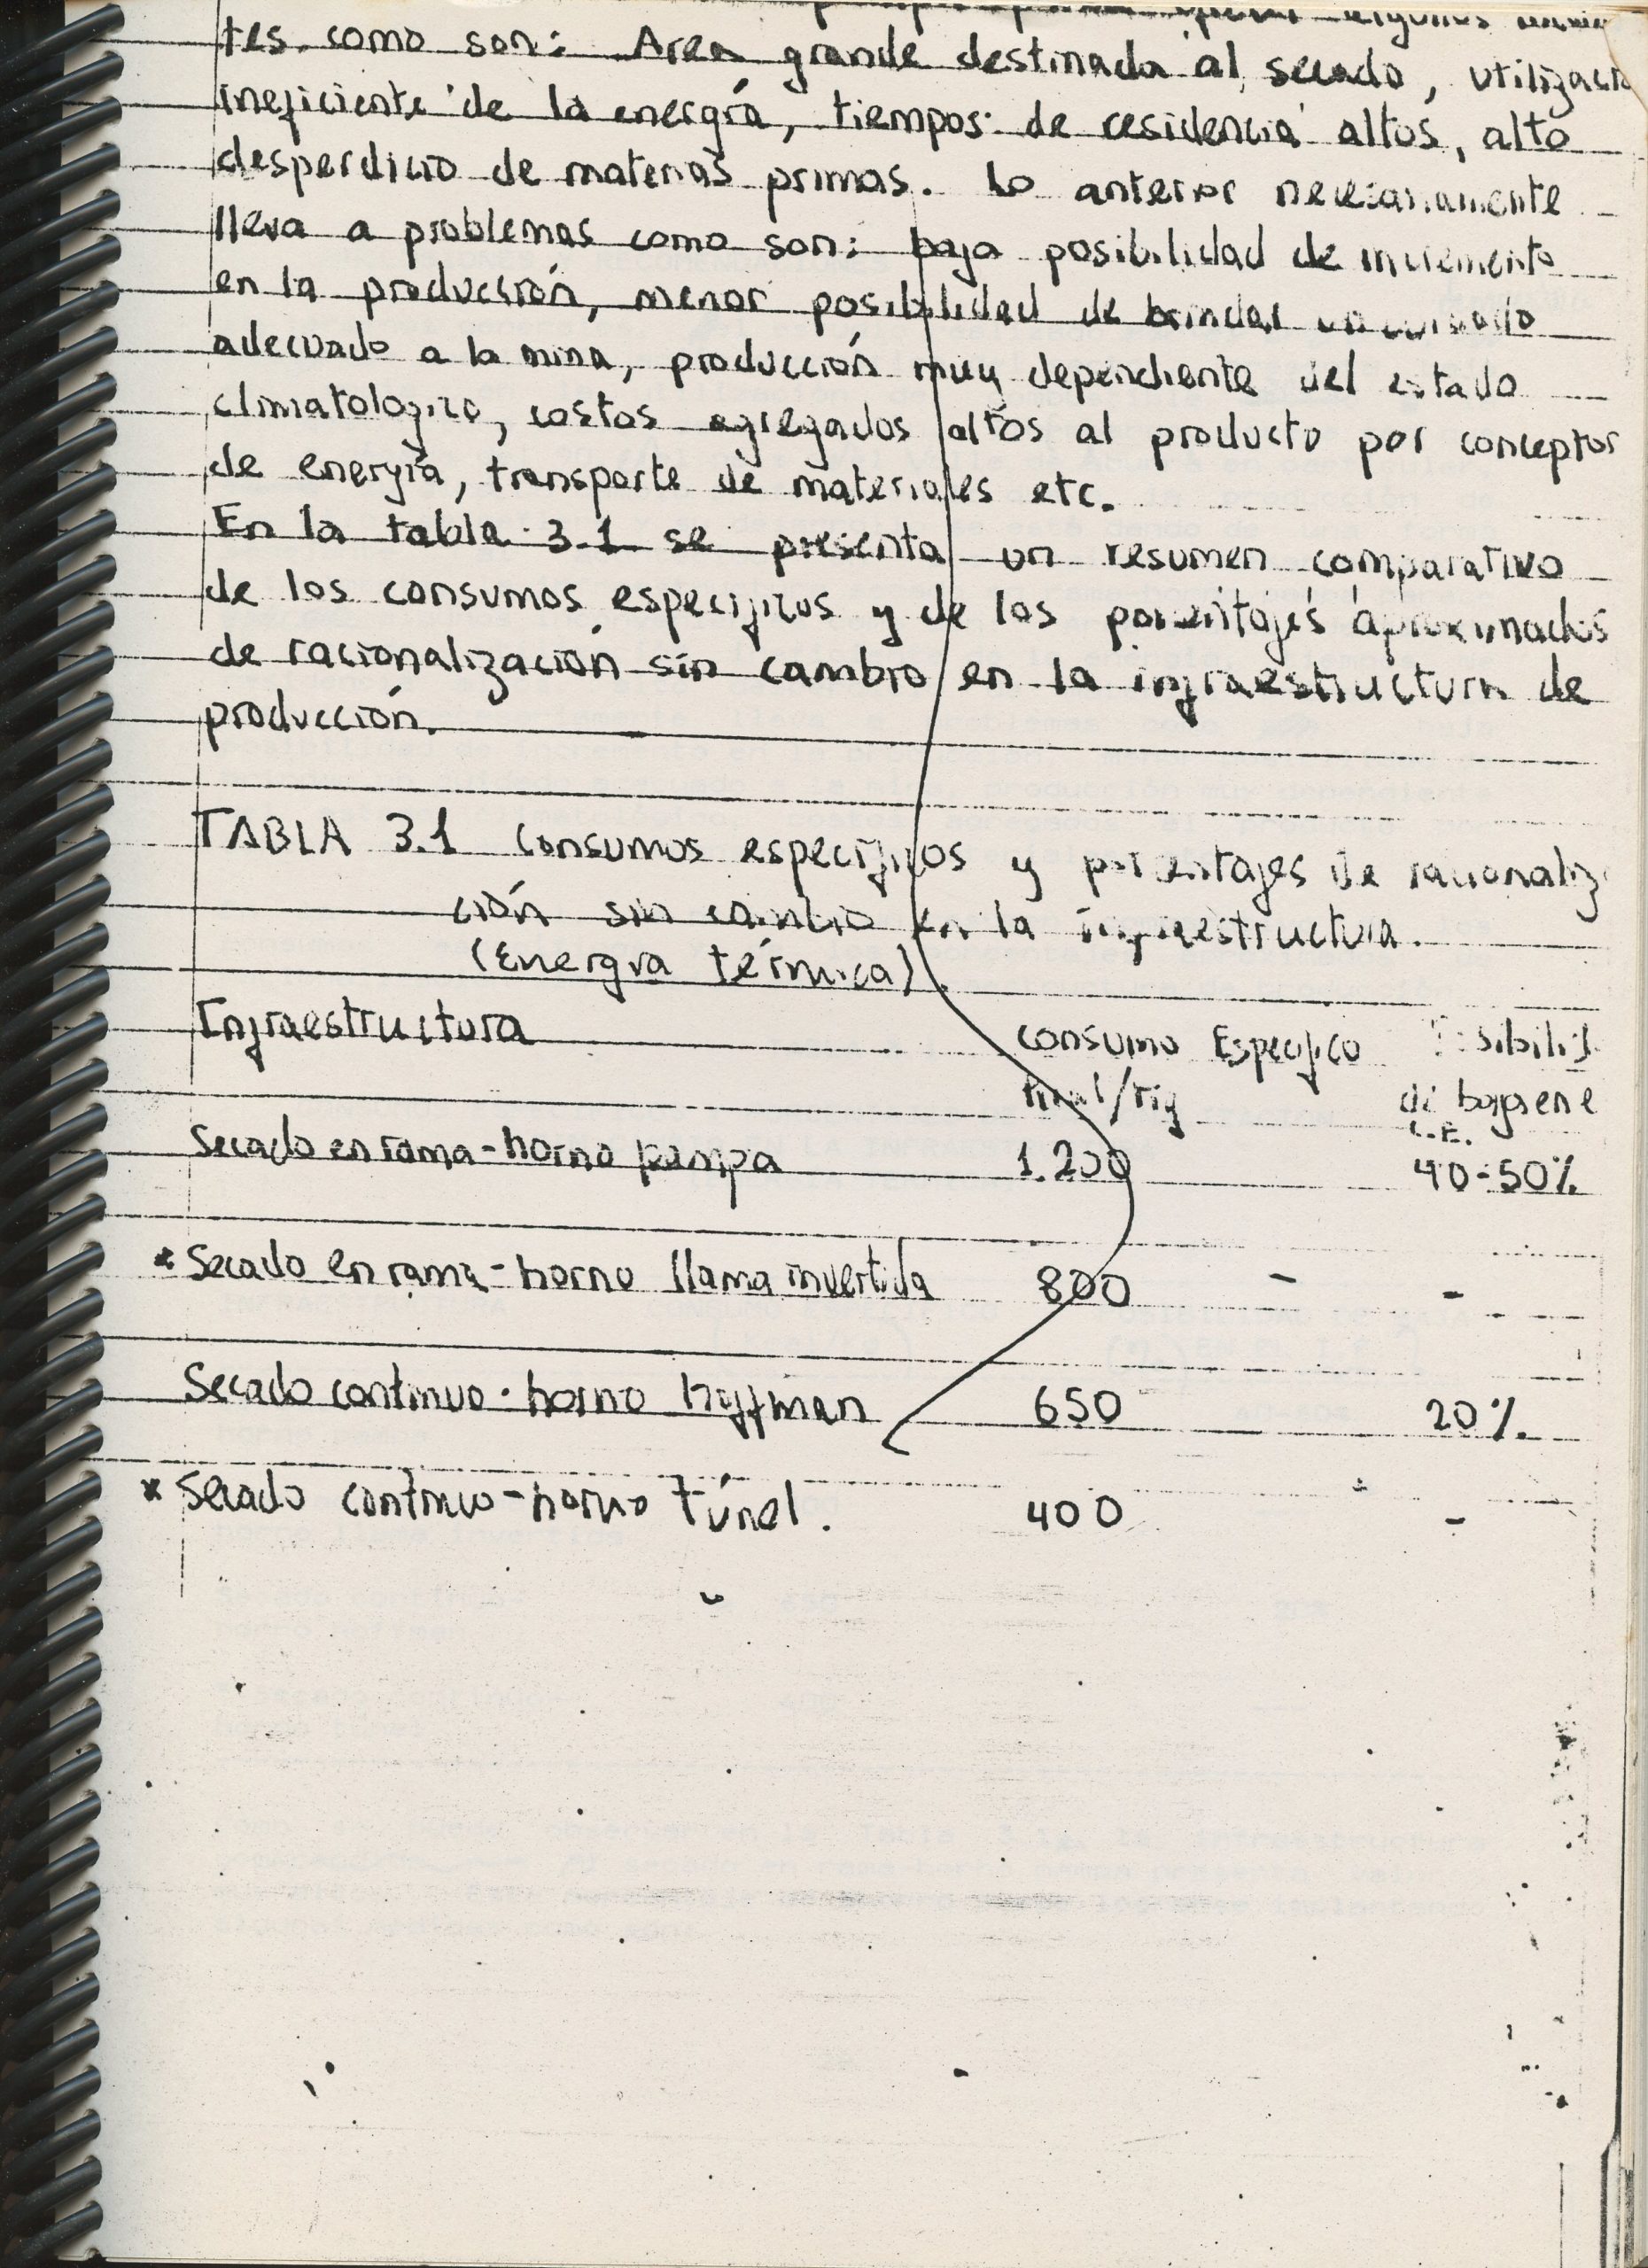 algunos
tes como son: Area grande destinada al secado, utilizació
ineficiente de la energía, tiempos de residencia altos, alto
desperdicio de materias primas. Lo anterior necesariamente
lleva a problemas como son: baja posibilidad de incremento
en la producción, menor posibilidad de brindar un
adecuado a la mina, producción muy dependiente del estado
climatologico, costos agregados altos al producto por conceptos
de energía, transporte de materiales etc.
En la tabla 3.1 se presenta un resumen comparativo
de los consumos especificos y de los porcentajes aproximados
de racionalización sin cambio en la infraestructura de
producción.
TABLA 3.1 Consumos especificos y porcentajes de racionaliz
ción sin cambio en la infraestructura.
(Energía térmica)
Infraestructura consumo Especifico
de bajar en el
C.E.
Secado en rama - horno pampa 1.200 40-50%
* Secado en rama - horno llama invertida 800 - -
Secado continuo - horno hoffman 650 20%
* Secado continuo - horno túnel. 400 -